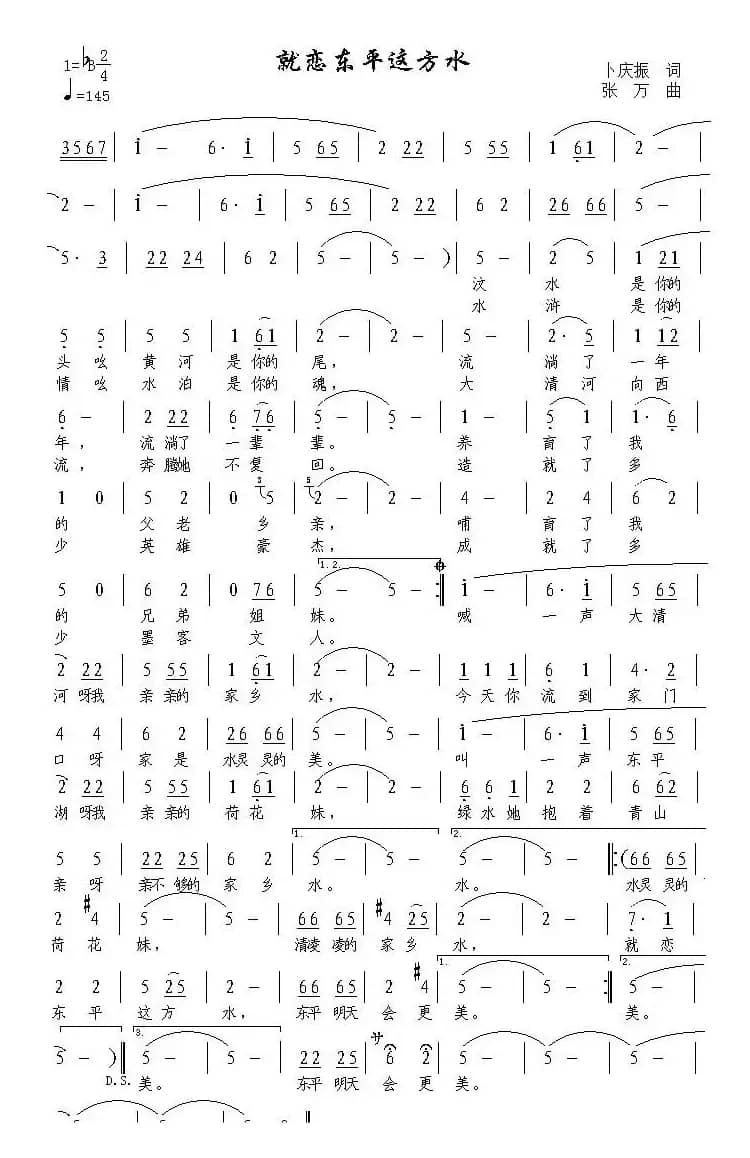 就恋东平这方水
1=♭B 2/4
♩=145
卜庆振 词
张 万 曲
3567 | i – | 6· i | 5 65 | 2 22 | 5 55 | 1 61 | 2 – |
2 – | i – | 6· i | 5 65 | 2 22 | 6 2 | 26 66 | 5 – |
5· 3 | 22 24 | 6 2 | 5 – | 5 – ) | 5 – | 2 5 | 1 21 |
汶 水 是你的
水 浒 是你的
5 5 | 5 5 | 1 61 | 2 – | 2 – | 5 – | 2· 5 | 1 12 |
头吆 黄河 是你的 尾， 流 淌了 一年
情吆 水泊 是你的 魂， 大 清河 向西
6 – | 2 22 | 6 76 | 5 – | 5 – | 1 – | 5 1 | 1· 6 |
年， 流淌了 一辈 辈。 养 育了 我
流， 奔腾她 不复 回。 造 就了 多
1 0 | 5 2 | 0 5 | 2 – | 2 – | 4 – | 2 4 | 6 2 |
的 父老 乡 亲， 哺 育了 我
少 英雄 豪 杰， 成 就了 多
1. 2.
5 0 | 6 2 | 0 76 | 5 – | 5 – :‖ i – | 6· i | 5 65 |
的 兄弟 姐 妹。 喊 一声 大清
少 墨客 文 人。
2 22 | 5 55 | 1 61 | 2 – | 2 – | 1 1 1 | 6 1 | 4· 2 |
河呀我 亲亲的 家乡 水， 今天你 流到 家门
4 4 | 6 2 | 26 66 | 5 – | 5 – | i – | 6· i | 5 65 |
口呀 家是 水灵灵的 美。 叫 一声 东平
2 22 | 5 55 | 1 61 | 2 – | 2 – | 6 6 1 | 2 2 | 6 62 |
湖呀我 亲亲的 荷花 妹， 绿水她 抱着 青山
1. 2.
5 5 | 22 25 | 6 2 | 5 – | 5 – | 5 – | 5 – ‖: (66 65 |
亲呀 亲不够的 家乡 水。 水。 水灵灵的
2 #4 | 5 – | 5 – | 66 65 | #4 25 | 2 – | 2 – | 7· 1 |
荷花 妹， 清凌凌的 家乡 水， 就恋
1. 2.
2 2 | 5 25 | 2 – | 2 – | 22 25 | 2 #4 | 5 – | 5 – :‖ 5 – |
东平 这方 水， 东平明天 会更 美。 美。
3.
5 – ) ‖ 5 – | 5 – | 22 25 | サ 6 2 | 5 – | 5 – | 5 – | 5 – |
D.S. 美。 东平明天 会更 美。